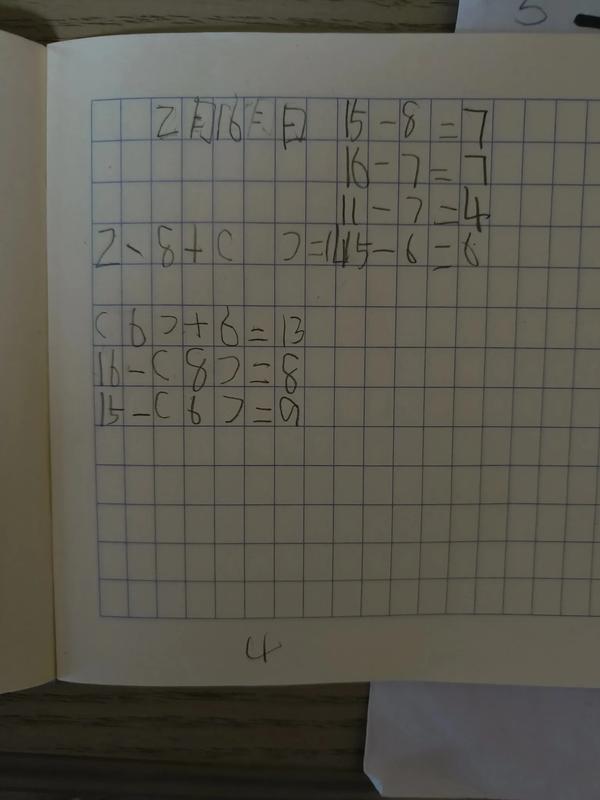 5
2月16日 15-8=7
16-7=7
11-7=4
2、8+( )=14 15-6=6
(6)+6=13
16-(8)=8
15-(6)=9
4